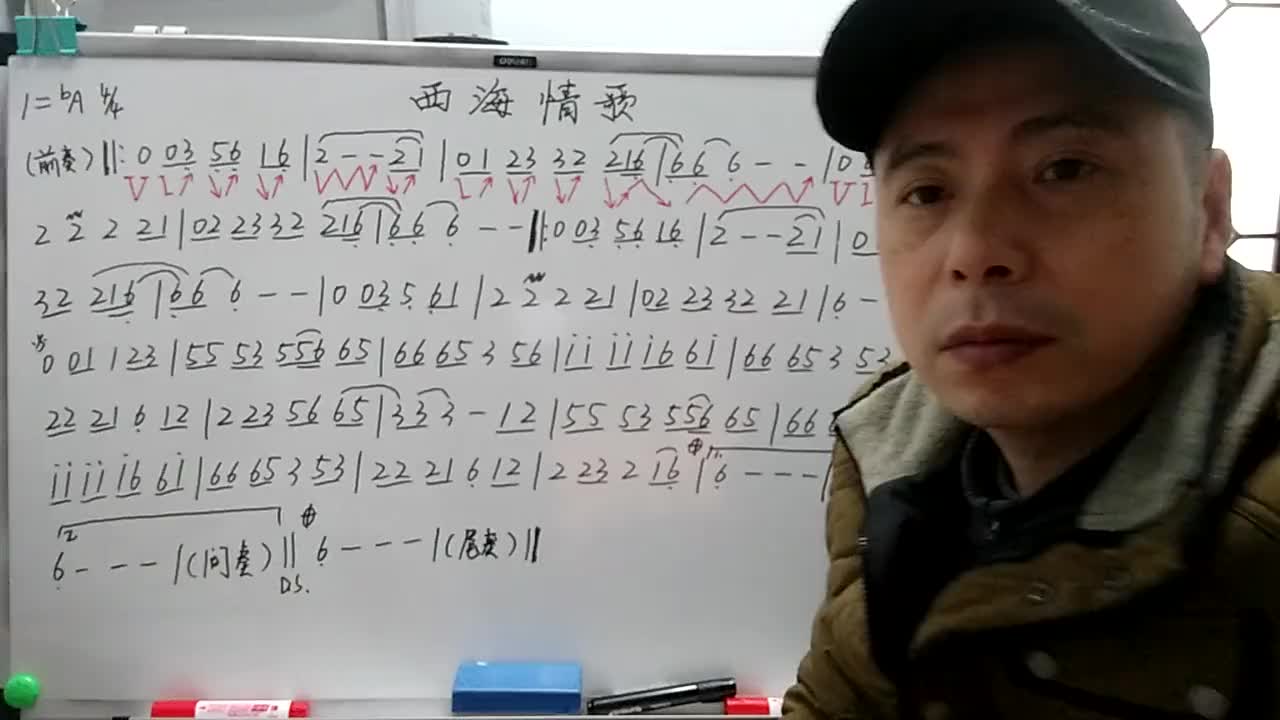 deli
西海情歌
1=ᵇA 4/4
(前奏)‖: 0 03 56 16 | 2 - - 21 | 01 23 32 216 | 66 6 - - | 0
2 2 2 21 | 02 23 32 216 | 66 6 - - ‖: 0 03 56 16 | 2 - - 21 | 0
32 216 | 66 6 - - | 0 03 5 61 | 2 2 2 21 | 02 23 32 21 | 6 -
0 01 1 23 | 55 53 556 65 | 66 65 3 56 | i̇i̇ i̇i̇ i̇6 6i̇ | 66 65 3 53
22 21 6 12 | 2 23 56 65 | 33 3 - 12 | 55 53 556 65 | 66
i̇i̇ i̇i̇ i̇6 6i̇ | 66 65 3 53 | 22 21 6 12 | 2 23 2 16 | 6 - - - |
2
6 - - - | (间奏) ‖ 6 - - - | (尾奏) ‖
D.S.